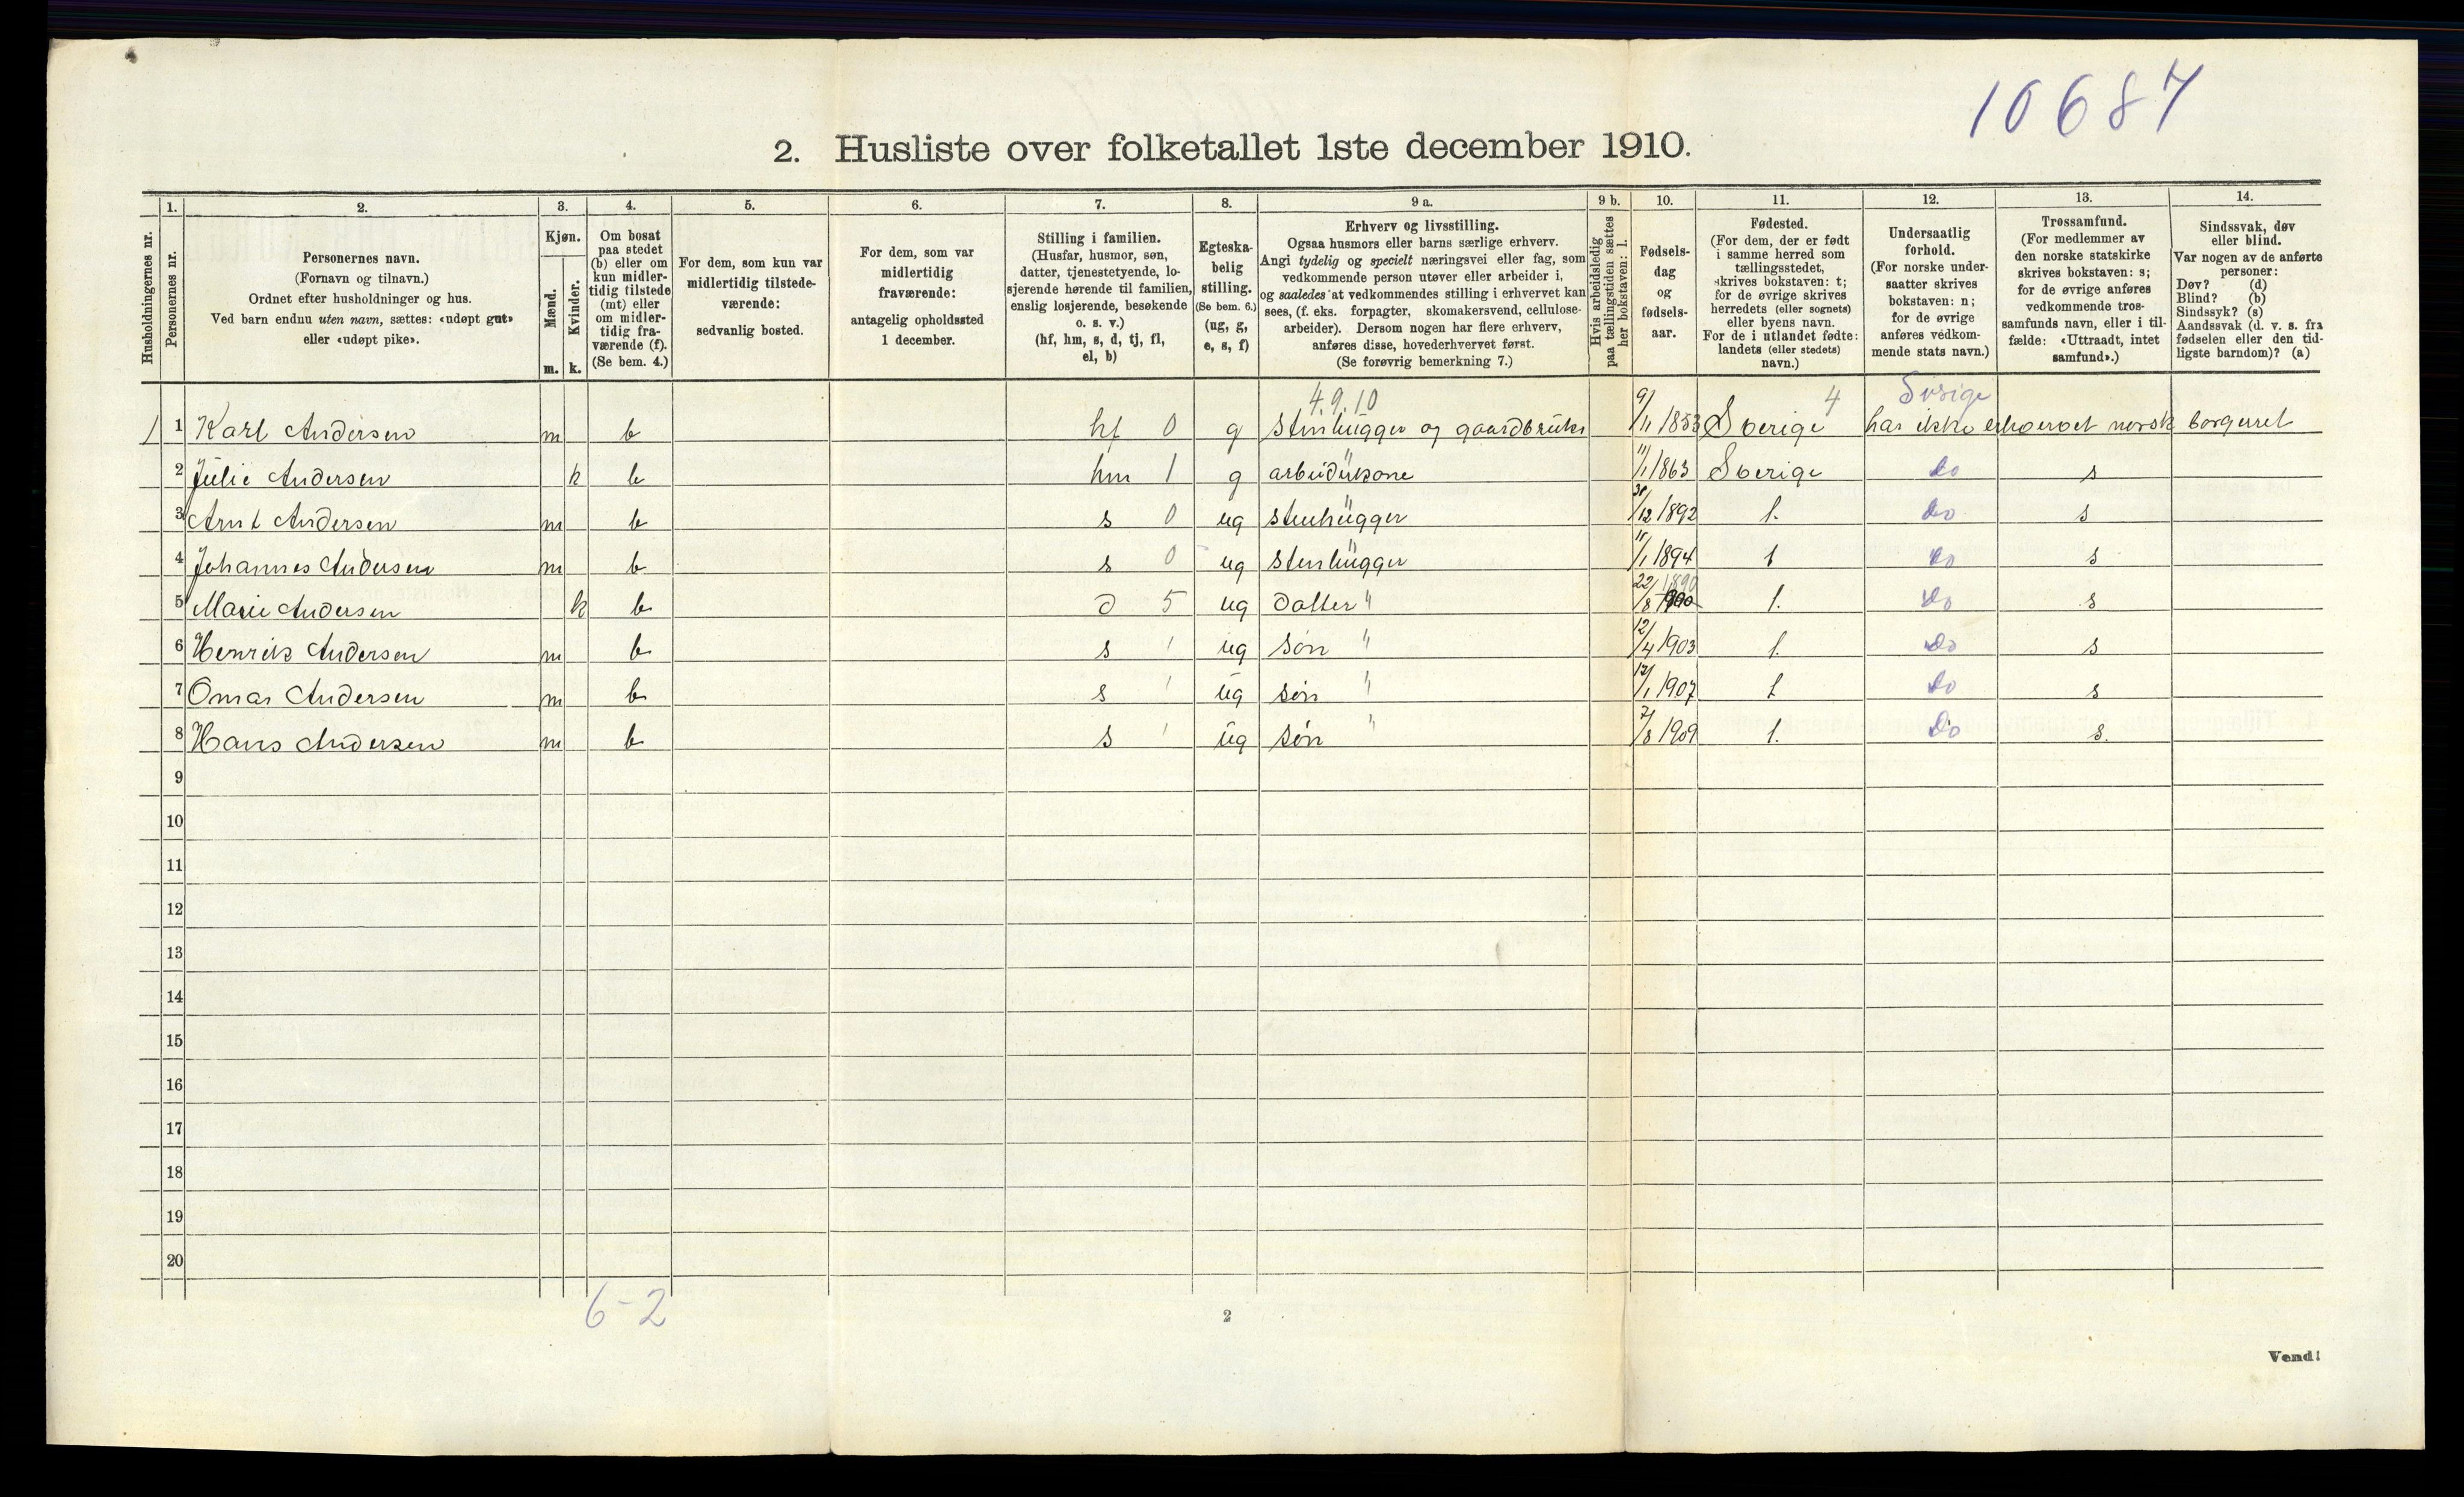 10687
2. Husliste over folketallet 1ste december 1910.
Husholdningernes nr.
1.
Personernes nr.
2.
Personernes navn.
(Fornavn og tilnavn.)
Ordnet efter husholdninger og hus.
Ved barn endnu uten navn, sættes: «udøpt gut»
eller «udøpt pike».
3.
Kjøn.
Mænd.
Kvinder.
m. k.
4.
Om bosat
paa stedet
(b) eller om
kun midler-
tidig tilstede
(mt) eller
om midler-
tidig fra-
værende (f).
(Se bem. 4.)
5.
For dem, som kun var
midlertidig tilstede-
værende:
sedvanlig bosted.
6.
For dem, som var
midlertidig
fraværende:
antagelig opholdssted
1 december.
7.
Stilling i familien.
(Husfar, husmor, søn,
datter, tjenestetyende, lo-
sjerende hørende til familien,
enslig losjerende, besøkende
o. s. v.)
(hf, hm, s, d, tj, fl,
el, b)
8.
Egteska-
belig
stilling.
(Se bem. 6.)
(ug, g,
e, s, f)
9 a.
Erhverv og livsstilling.
Ogsaa husmors eller barns særlige erhverv.
Angi tydelig og specielt næringsvei eller fag, som
vedkommende person utøver eller arbeider i,
og saaledes at vedkommendes stilling i erhvervet kan
sees, (f. eks. forpagter, skomakersvend, cellulose-
arbeider). Dersom nogen har flere erhverv,
anføres disse, hovederhvervet først.
(Se forøvrig bemerkning 7.)
9 b.
Hvis arbeidsledig
paa tællingstiden sættes
her bokstaven: l.
10.
Fødsels-
dag
og
fødsels-
aar.
11.
Fødested.
(For dem, der er født
i samme herred som
tællingsstedet,
skrives bokstaven: t;
for de øvrige skrives
herredets (eller sognets)
eller byens navn.
For de i utlandet fødte:
landets (eller stedets)
navn.)
12.
Undersaatlig
forhold.
(For norske under-
saatter skrives
bokstaven: n;
for de øvrige
anføres vedkom-
mende stats navn.)
13.
Trossamfund.
(For medlemmer av
den norske statskirke
skrives bokstaven: s;
for de øvrige anføres
vedkommende tros-
samfunds navn, eller i til-
fælde: «Uttraadt, intet
samfund».)
14.
Sindssvak, døv
eller blind.
Var nogen av de anførte
personer:
Døv? (d)
Blind? (b)
Sindssyk? (s)
Aandssvak (d. v. s. fra
fødselen eller den tid-
ligste barndom)? (a)
4.9.10 4 Sverige
1 1 Karl Andersen m b hf 0 g stenhugger og gaardbruker 9/11 1853 Sverige har ikke erhvervet norsk borgerret
2 Julie Andersen k b hm 1 g arbeiderkone " 11/1 1863 Sverige do s
3 Arnt Andersen m b s 0 ug stenhugger 31/12 1892 t. do s
4 Johannes Andersen m b s 0 ug stenhugger " 11/1 1894 t do s
5 Marie Andersen k b d 5 ug datter " 22/8 1890 t. do s
6 Henrik Andersen m b s 1 ug søn " 12/4 1903 t. do s
7 Omar Andersen m b s 1 ug søn " 17/1 1907 t do s
8 Hans Andersen m b s 1 ug søn " 7/8 1909 t. do s.
9
10
11
12
13
14
15
16
17
18
19
20
6-2
2
Vend!